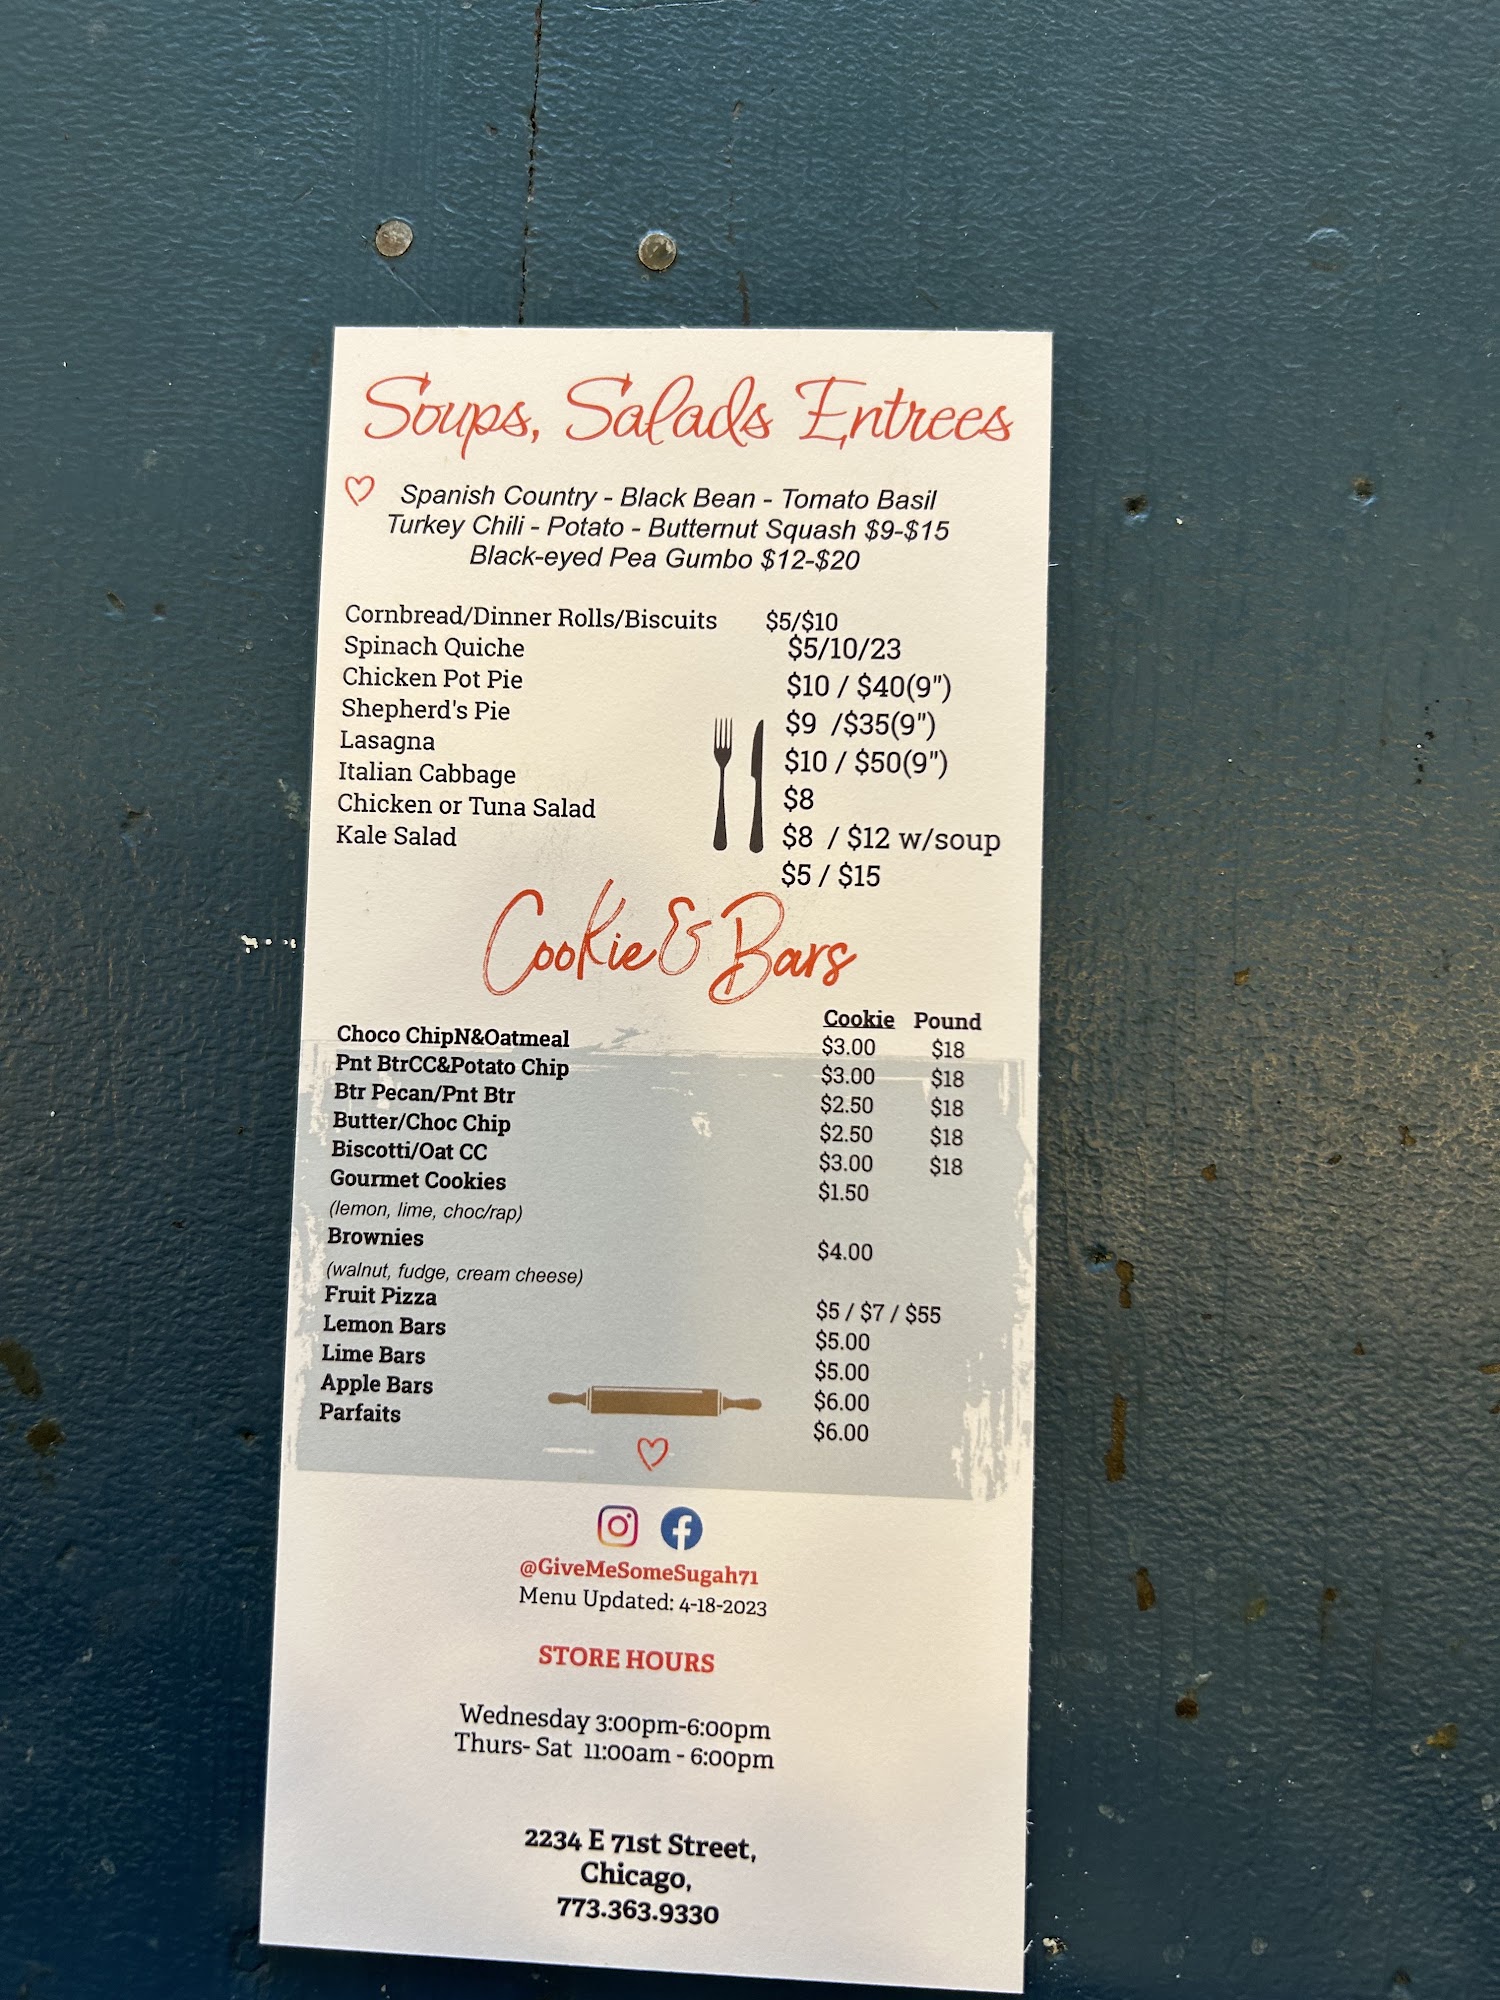 Soups, Salads Entrees
Spanish Country - Black Bean - Tomato Basil
Turkey Chili - Potato - Butternut Squash $9-$15
Black-eyed Pea Gumbo $12-$20
Cornbread/Dinner Rolls/Biscuits $5/$10
Spinach Quiche $5/10/23
Chicken Pot Pie $10 / $40(9")
Shepherd's Pie $9 /$35(9")
Lasagna $10 / $50(9")
Italian Cabbage $8
Chicken or Tuna Salad $8 / $12 w/soup
Kale Salad $5 / $15
Cookie & Bars
Cookie Pound
Choco ChipN&Oatmeal $3.00 $18
Pnt BtrCC&Potato Chip $3.00 $18
Btr Pecan/Pnt Btr $2.50 $18
Butter/Choc Chip $2.50 $18
Biscotti/Oat CC $3.00 $18
Gourmet Cookies $1.50
(lemon, lime, choc/rap)
Brownies $4.00
(walnut, fudge, cream cheese)
Fruit Pizza $5 / $7 / $55
Lemon Bars $5.00
Lime Bars $5.00
Apple Bars $6.00
Parfaits $6.00
@GiveMeSomeSugah71
Menu Updated: 4-18-2023
STORE HOURS
Wednesday 3:00pm-6:00pm
Thurs- Sat 11:00am - 6:00pm
2234 E 71st Street,
Chicago,
773.363.9330